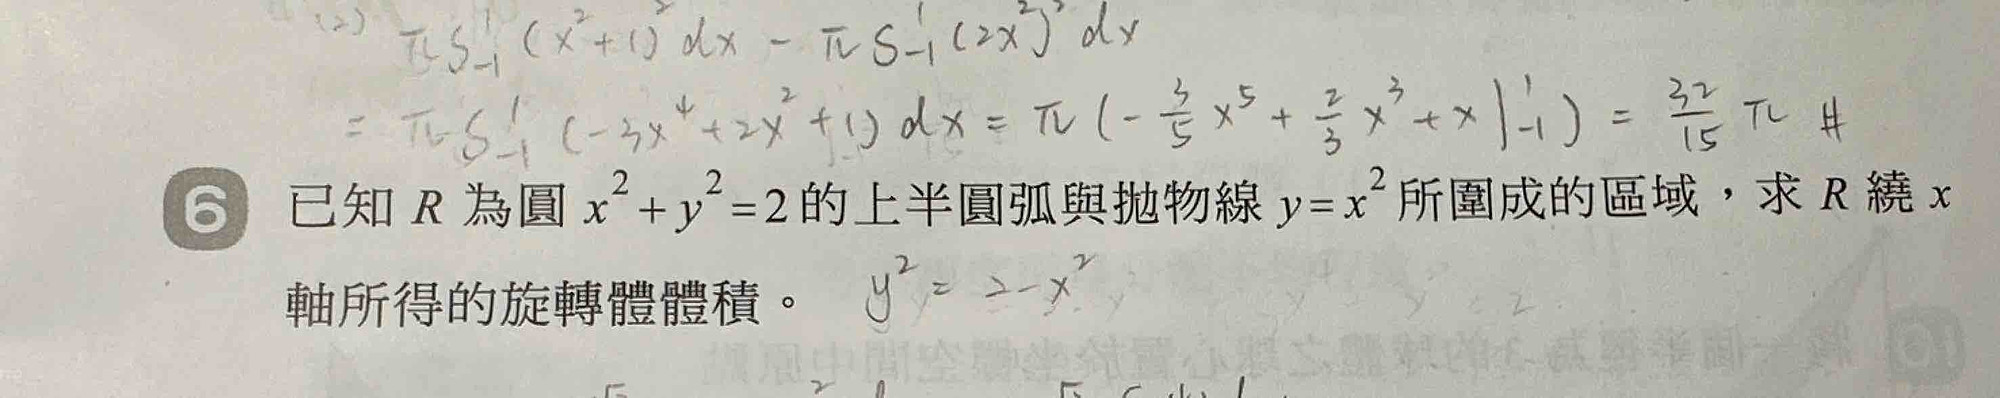 (2) π∫₋₁¹ (x²+1)² dx - π∫₋₁¹ (2x²)² dx
= π∫₋₁¹ (-3x⁴+2x²+1) dx = π(-3/5 x⁵ + 2/3 x³ + x |₋₁¹) = 32/15 π #
6 已知 R 為圓 x²+y²=2的上半圓弧與拋物線 y=x² 所圍成的區域，求 R 繞 x
軸所得的旋轉體體積。 y² = 2-x²